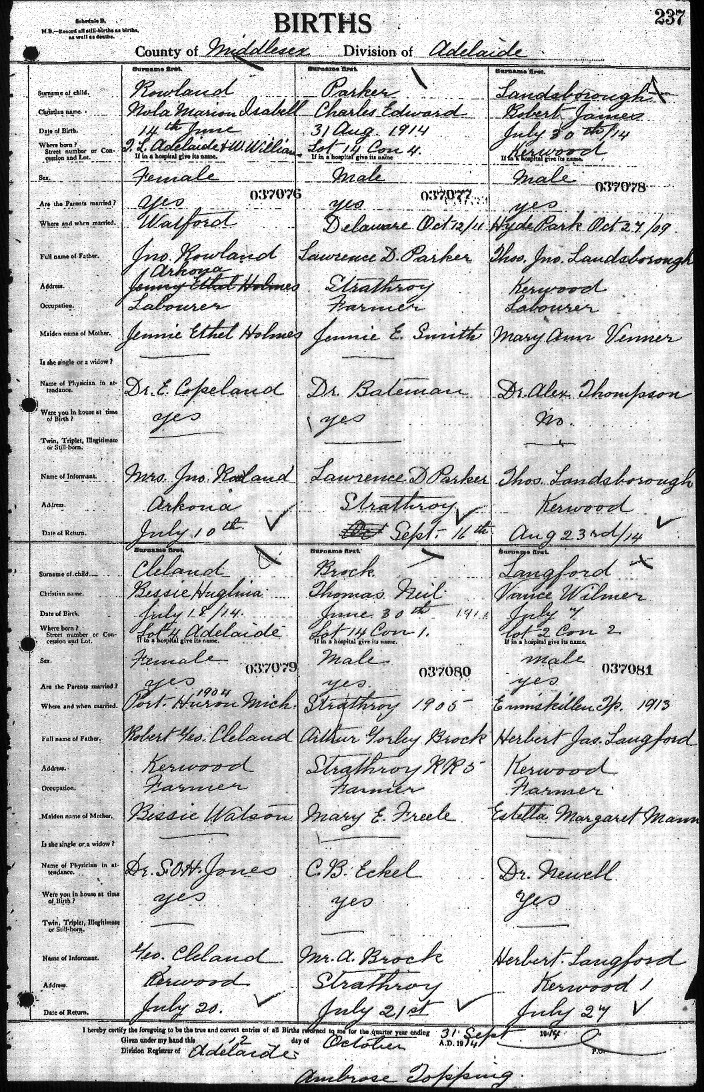 Schedule B.
N.B.—Record all still-births as births, as well as deaths.
BIRTHS
237
County of Middlesex Division of Adelaide
Surname first. Surname first. Surname first.
Surname of child. Rowland Parker Landsborough
Christian name. Nola Marion Isabell Charles Edward Robert James
Date of Birth. 14th June 31 Aug 1914 July 30th/14
Where born? Street number or Concession and Lot. S. L. Adelaide & W. William Lot 14 Con 4. Kerwood
If in a hospital give its name. If in a hospital give its name If in a hospital give its name.
Sex. Female Male Male
037076 037077 037078
Are the Parents married? yes yes yes
Where and when married. Watford Delaware Oct 12/11 Hyde Park Oct 27/09
Full name of Father. Jno. Rowland Lawrence D. Parker Thos. Jno. Landsborough
Arkona
Address. Jenny Ethel Holmes Strathroy Kerwood
Occupation. Labourer Farmer Labourer
Maiden name of Mother. Jennie Ethel Holmes Jennie E. Smith Mary Ann Venner
Is she single or a widow?
Name of Physician in attendance. Dr. E. Copeland Dr. Bateman Dr. Alex Thompson
Were you in house at time of Birth? yes yes No.
Twin, Triplet, Illegitimate or Still-born.
Name of Informant. Mrs. Jno. Rowland Lawrence D Parker Thos. Landsborough
Address. Arkona Strathroy Kerwood
Date of Return. July 10th Oct Sept- 16th Aug 23rd/14
Surname first. Surname first. Surname first.
Surname of child. Cleland Brock Langford
Christian name. Bessie Thomas Neil Vance Wilmer
Date of Birth. July 18/14. June 30th 191 July 7
Where born? Street number or Concession and Lot. Lot 4 Adelaide Lot 14 Con 1. Lot 2 Con 2
If in a hospital give its name. If in a hospital give its name. If in a hospital give its name.
Sex. Female Male male
037079 037080 037081
Are the Parents married? yes yes. yes
1904
Where and when married. Port. Huron Mich. Strathroy 1905 Enniskillen Tp. 1913
Full name of Father. Robert Geo. Cleland Arthur Gorley Brock Herbert Jas. Langford
Address. Kerwood Strathroy RR5 Kerwood
Occupation. Farmer Farmer Farmer
Maiden name of Mother. Bessie Watson Mary E. Freele Estella Margaret Mann
Is she single or a widow?
Name of Physician in attendance. Dr. S.O.H. Jones C. B. Eckel Dr. Newell
Were you in house at time of Birth? yes yes Yes
Twin, Triplet, Illegitimate or Still-born.
Name of Informant. Geo. Cleland Mr. A. Brock Herbert Langford
Address. Kerwood Strathroy Kerwood 1
Date of Return. July 20. July 21st July 27
I hereby certify the foregoing to be the true and correct entries of all Births returned to me for the quarter year ending 31 Sept 1914
Given under my hand this 12 day of October A.D. 1914 P.O.
Division Registrar of Adelaide
Ambrose Topping